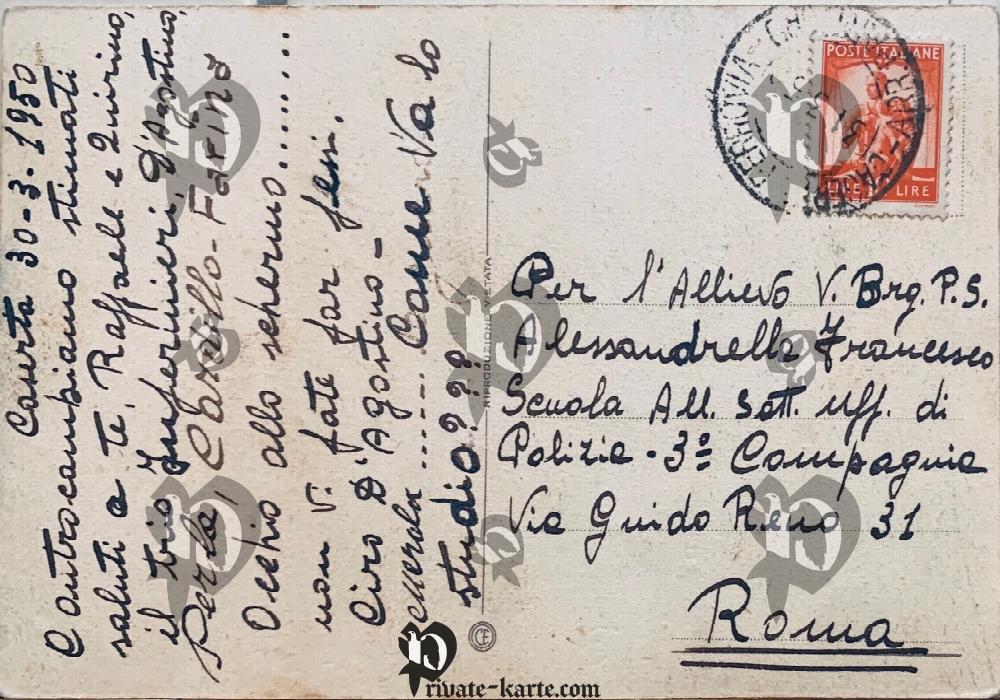 Caserta 30-3-1950
Contraccambiamo stimati
saluti a te, Raffaele e Quirino,
il trio Imperimieri, D'Agostino,
Perla, Carzillo-Farina
Occhio allo schermo.......
non Vi fate far fessi.
Ciro D'Agostino -
...... Come Va lo
studio???
RIPRODUZIONE VIETATA
POSTE ITALIANE
LIRE LIRE
Per l'Allievo V. Brg. P.S.
Alessandrella Francesco
Scuola All. Sott. Uff. di
Polizia - 3º Compagnia
Via Guido Reno 31
Roma
Private-karte.com